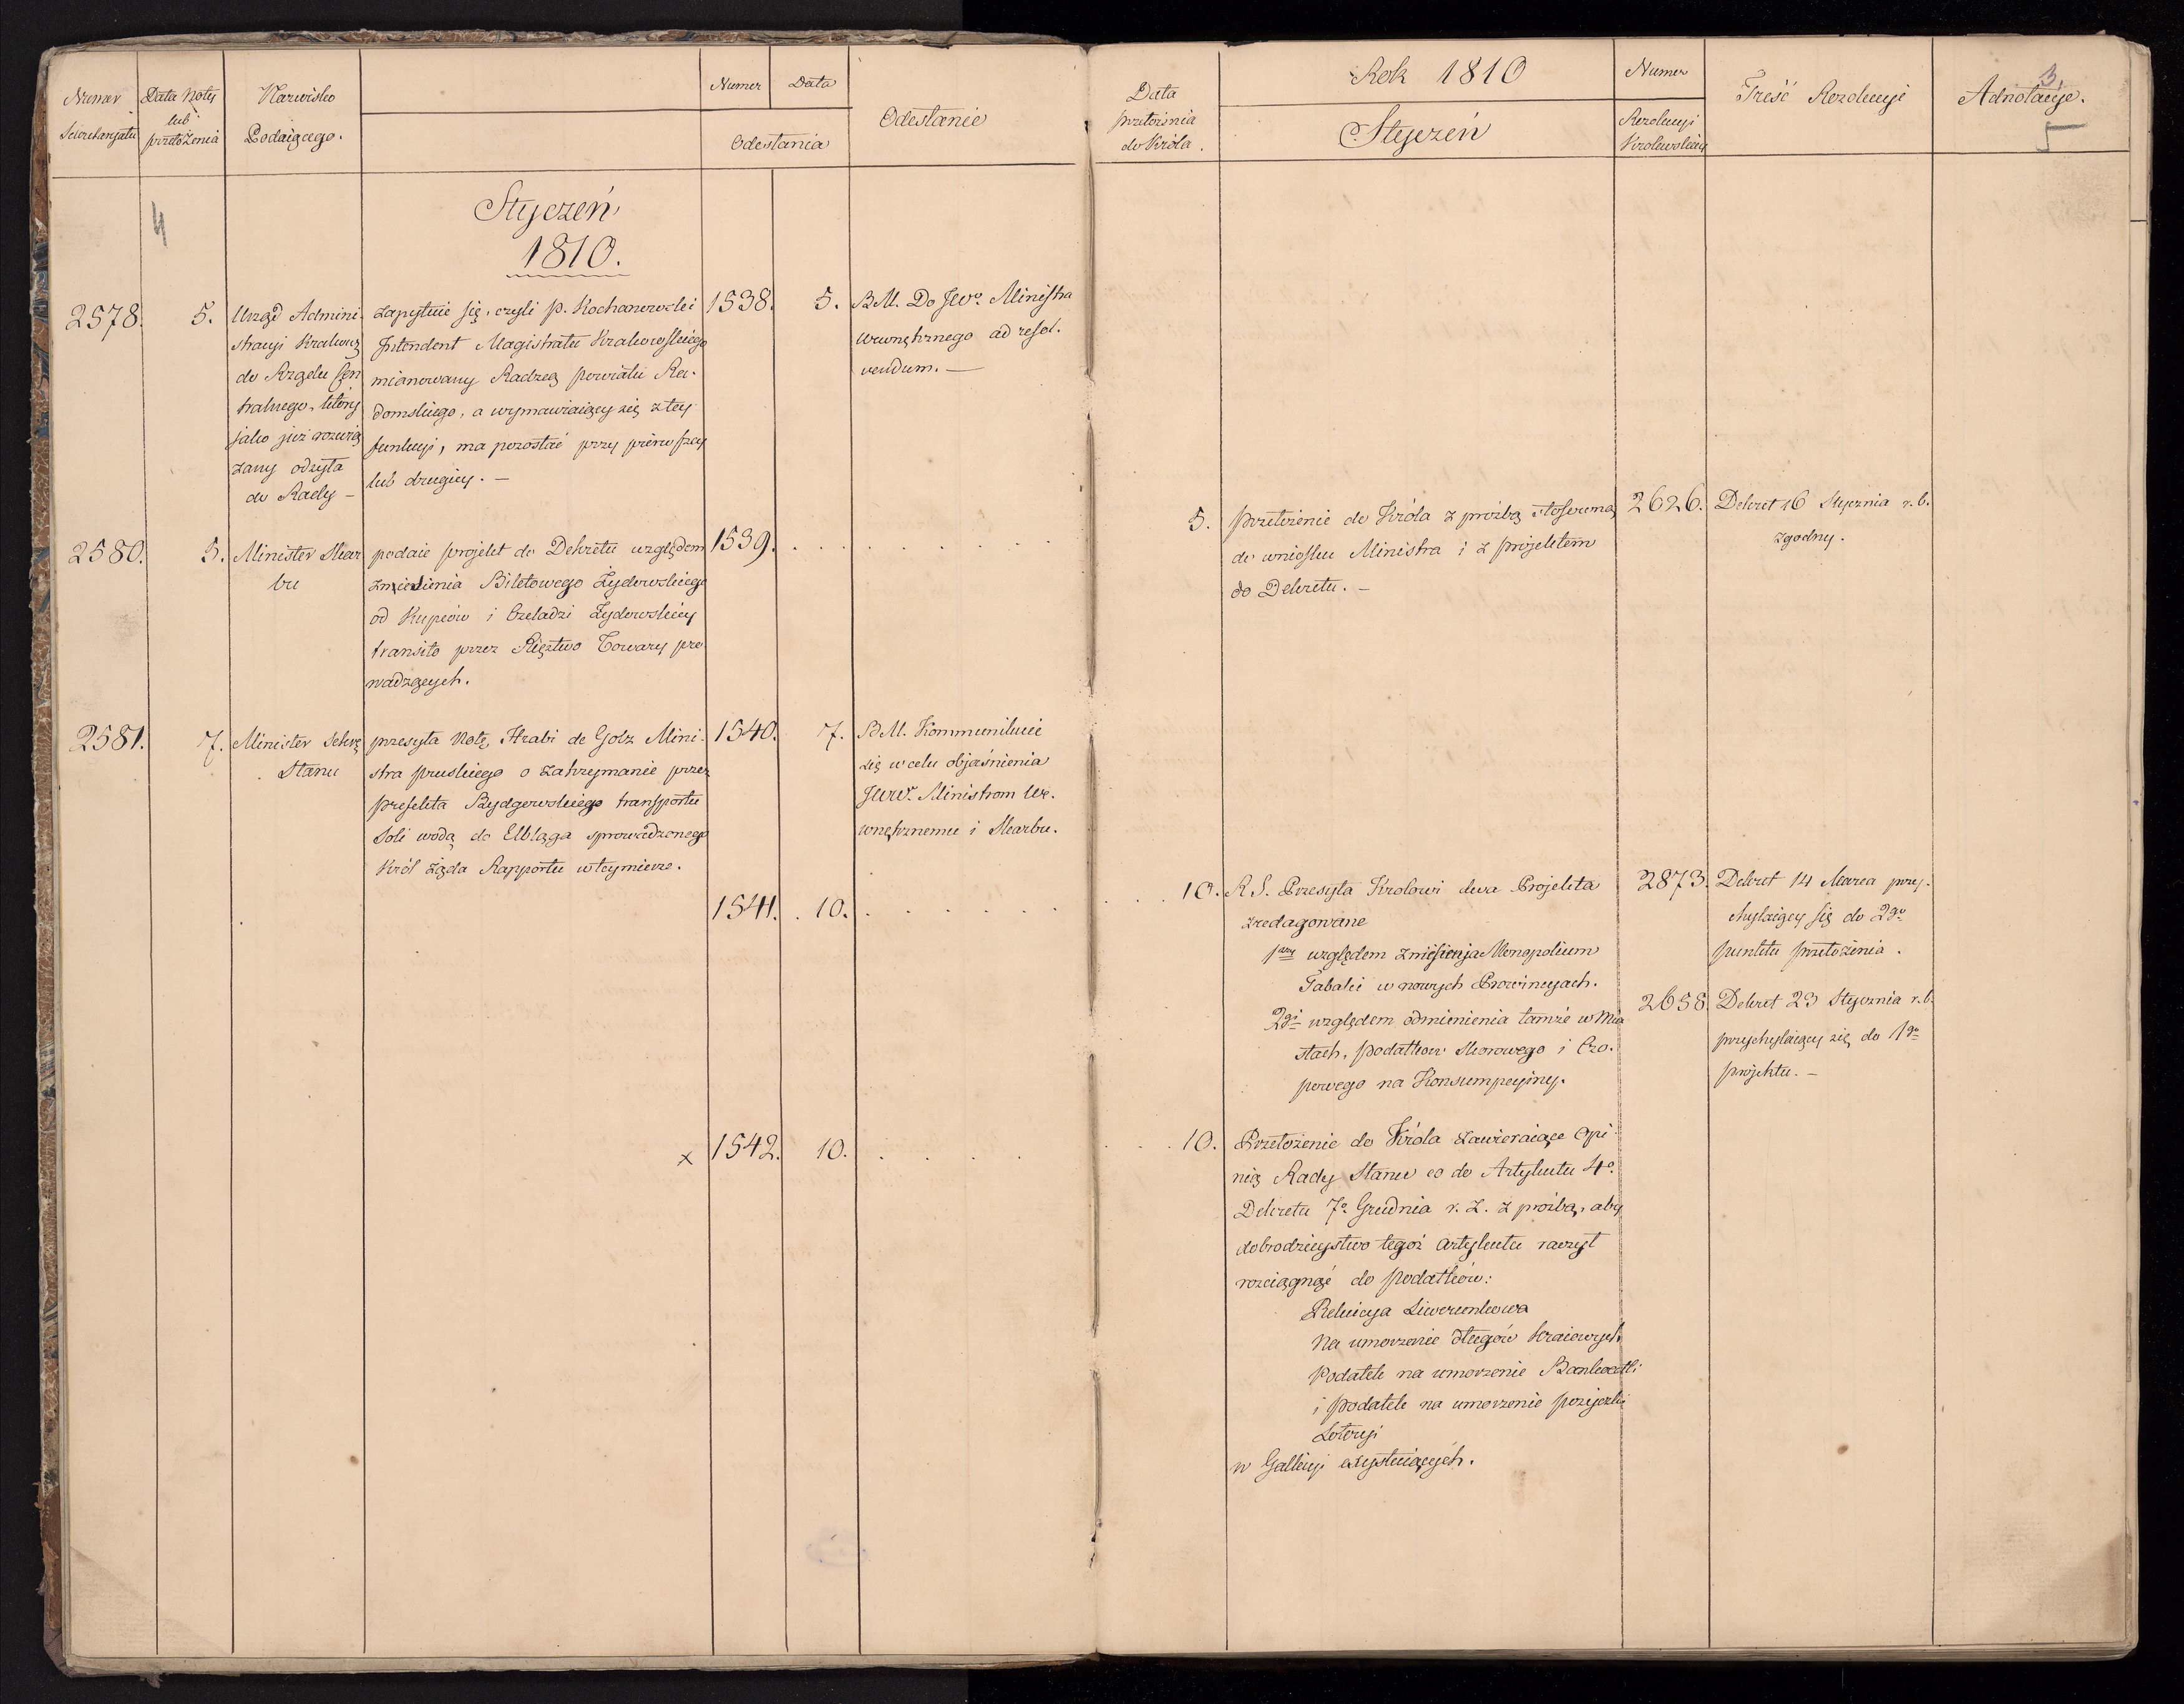 Numer
Sekretaryatu
Data Noty
lub
przełożenia
Nazwisko
Podaiącego.
Numer
Data
Odesłania
Odesłanie
4
Styczeń
1810.
2578.
5.
Urząd Admini-
stracyi Krakows
do Rządu Cen
tralnego, który
jako już rozwią
zany odzyła
do Rady -
zapytuie się, czyli p. Kochanowski
Intendent Magistratu Krakowskiego
mianowany Radzcą powiatu Ra-
domskiego, a wymawiaiący się z tey
funkcyi, ma pozostać przy pierwszey
lub drugiey. -
1538.
5.
BM. Do JWo. Ministra
wewnętrznego ad resol-
vendum. -
2580.
5.
Minister Skar
bu
podaie projekt do Dekretu względem
zniesienia Biletowego Żydowskiego
od Kupców i Czeladzi Żydowskiey
transito przez Xięztwo Towary pro
wadzących.
1539.
2581.
7.
Minister Sekre
Stanu
przesyła Notę Hrabi de Golz Mini-
stra pruskiego o zatrzymanie przez
prefekta Bydgowskiego transportu
Soli wodą do Elbląga sprowadzonego
Król żąda Rapportu w tey mierze.
1540.
7.
BM. Kommunikuie
się w celu objaśnienia
JWW. Ministrom We-
wnętrznemu i Skarbu.
1541.
10.
x
1542.
10.
Data
przełożenia
do Króla.
Rok 1810
Styczeń
Numer
Rezolucyi
Krolewskiey
Treść Rezolucyi
3.
Adnotacye.
5
5.
przełożenie do Króla z prośbą stosowną
do wniosku Ministra i z projektem
do Dekretu. -
2626.
Dekret 16 Stycznia r.b.
zgodny.
10.
R S. Przesyła Krolowi dwa Projekta
zredagowane
1wszy względem zniesienia Monopolium
Tabaki w nowych Prowincyach.
2gi względem odmienienia tamże w Mia
stach, podatkow Skorowego i Czo-
powego na Konsumpcyiny.
2873.
Dekret 14 Marca przy-
chylaiący się do 2go
punktu przełożenia.
2658
Dekret 23 Stycznia r.b.
przychylaiący się do 1go
projektu. -
10.
Przełożenie do Króla zawieraiące Opi
nią Rady Stanu co do Artykułu 4o.
Dekretu 7o. Grudnia r. z. z prośbą, aby
dobrodzieystwo tegoż Artykułu raczył
rozciągnąć do podatków:
Reluicya Liwerunkowa
Na umorzenie długów kraiowych
Podatek na umorzenie Bankocetli
i podatek na umorzenie pożyczki
Loteryi
w Gallicyi exystuiących.